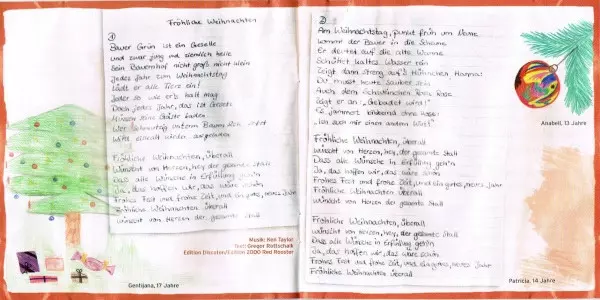 Fröhliche Weihnachten
1)
Bauer Grün ist ein Geselle
und zwar jung und ziemlich helle
Sein Bauernhof nicht groß nicht klein
Jedes Jahr zum Weihnachtstag
Lädt er alle Tiere ein!
Jeder so wie er's halt mag
Doch jedes Jahr, das ist Gesetz
Müssen seine Gäste baden
Wer Weihnachten unterm Baum
wird einmal
Fröhliche Weihnachten, überall
wünscht von Herzen, hey, der gesamte Stall
Dass alle Wünsche in Erfüllung gehn
Ja, das hoffen wir, das wäre schön
Frohes Fest und frohe Zeit, und ein gutes, neues Jahr
Fröhliche Weihnachten überall
wünscht von Herzen der gesamte Stall
Musik: Ken Taylor
Text: Gregor Rottschalk
Edition Discoton/Edition 2000 Red Rooster
Gentijana, 17 Jahre
2)
Am Weihnachtstag, punkt früh um Neune
kommt der Bauer in die Scheune
Er deutet auf die alte Wanne
Schüttet kaltes Wasser rein
Zeigt dann streng auf's Hühnchen Hanna:
Du musst heute sauber sein
Auch dem Schweinchen Rosa Rose
Sagt er an: "Gebadet wird!"
"Ich such mir einen andern Wirt!"
Fröhliche Weihnachten, überall
wünscht von Herzen, hey, der gesamte Stall
Dass alle Wünsche in Erfüllung gehn
Ja, das hoffen wir, das wäre schön
Frohes Fest und frohe Zeit, und ein gutes, neues Jahr
Fröhliche Weihnachten überall
wünscht von Herzen der gesamte Stall
Fröhliche Weihnachten, überall
wünscht von Herzen, hey, der gesamte Stall
Dass alle Wünsche in Erfüllung gehn
Ja, das hoffen wir, das wäre schön
Frohes Fest und frohe Zeit, und ein gutes, neues Jahr
Fröhliche Weihnachten überall
Anabell, 13 Jahre
Patricia, 14 Jahre